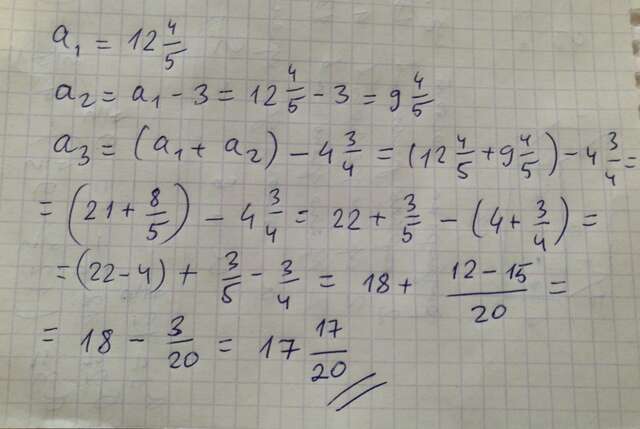 a₁ = 12 4/5
a₂ = a₁ - 3 = 12 4/5 - 3 = 9 4/5
a₃ = (a₁ + a₂) - 4 3/4 = (12 4/5 + 9 4/5) - 4 3/4 =
= (21 + 8/5) - 4 3/4 = 22 + 3/5 - (4 + 3/4) =
= (22 - 4) + 3/5 - 3/4 = 18 + (12 - 15)/20 =
= 18 - 3/20 = 17 17/20